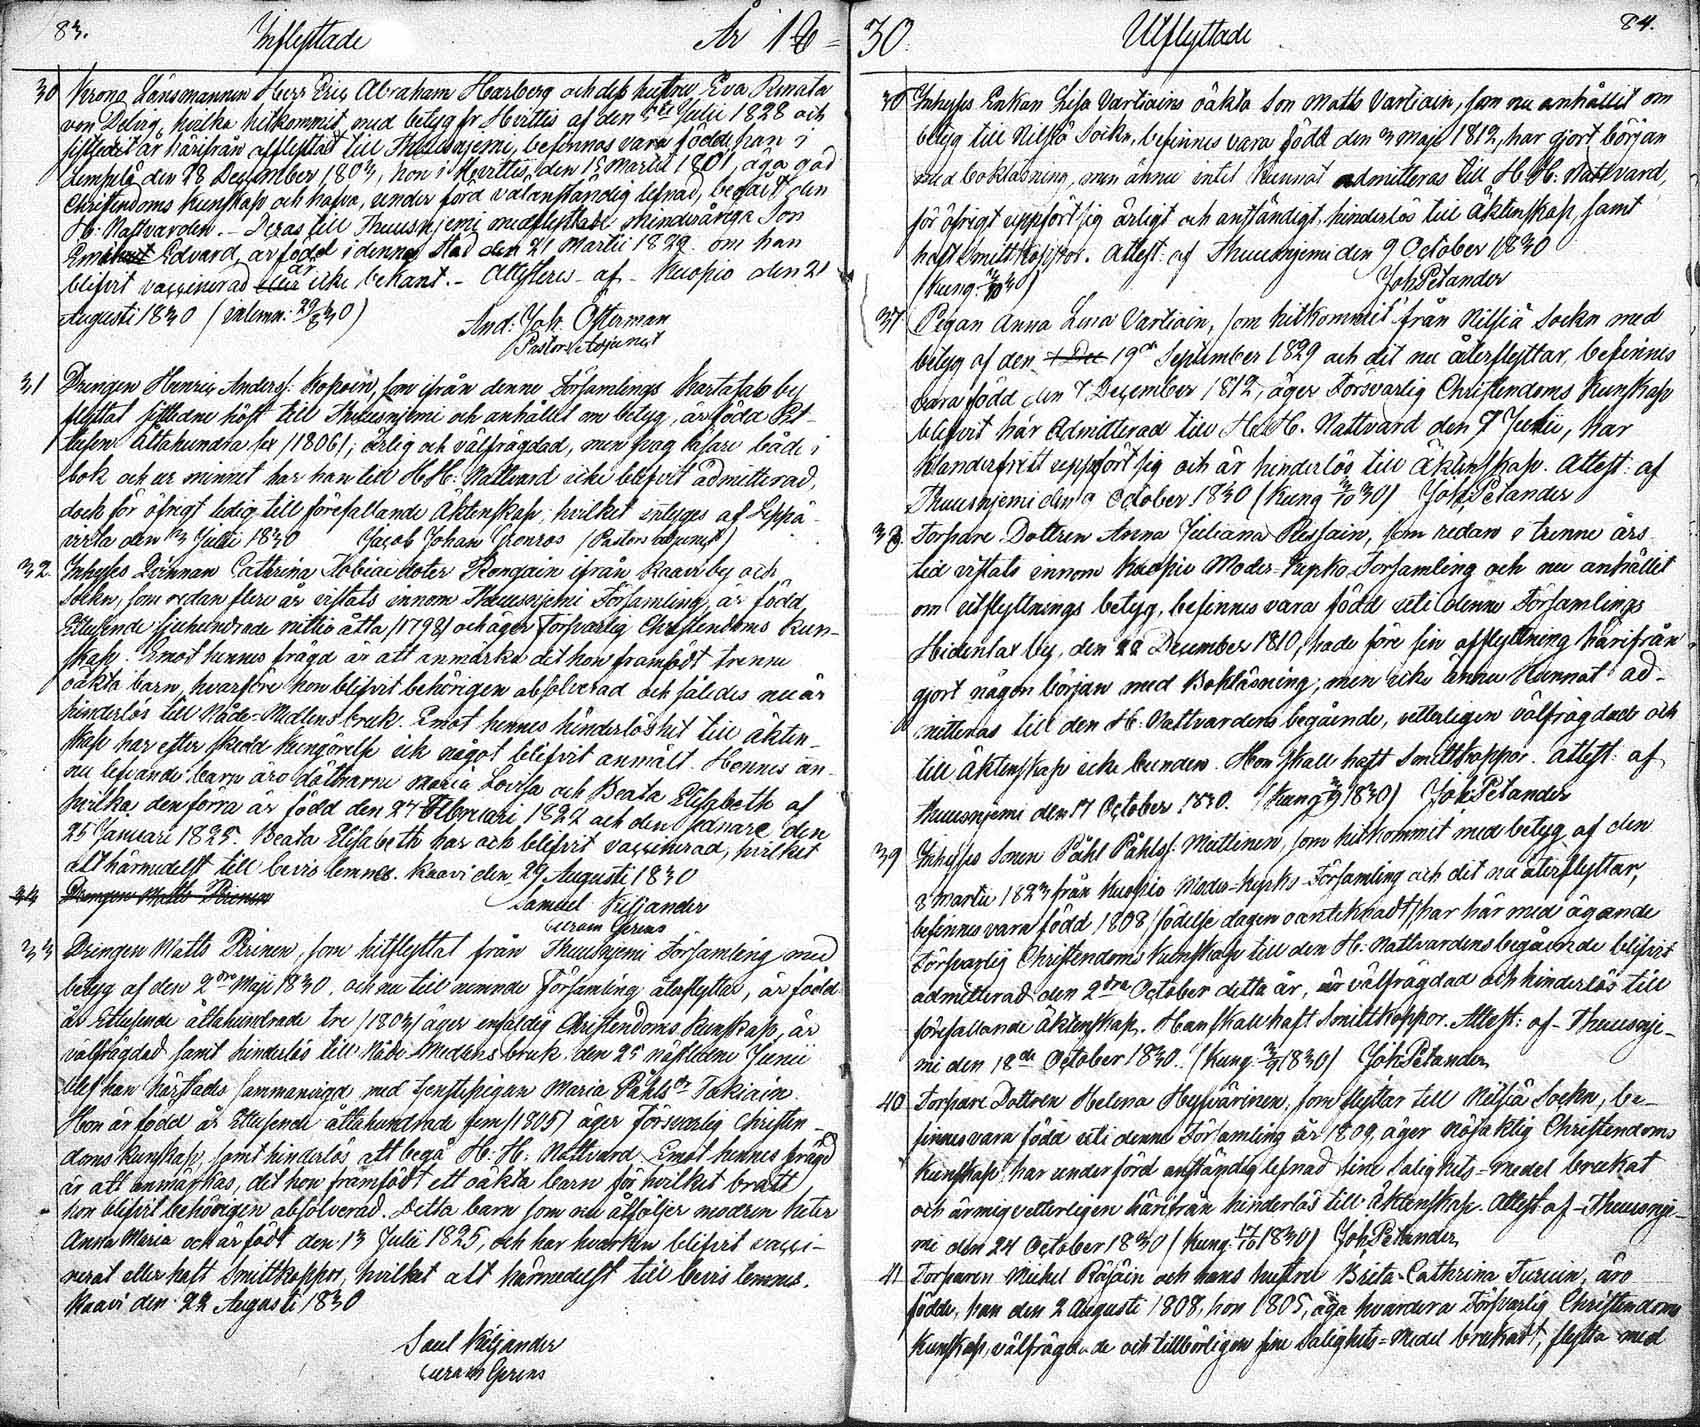 83.
Inflyttade
År 18=
30 Krono Länsmannen Herr Eric Abraham Harberg och dess hustru Eva Renata
von Delvig, hvilka hitkommit med betyg fr Hvittis af den Julii 1828 och
sistledit år härifrån afflyttat till Thuusnjemi, befinnas vara födde, han i
den 28 December 1803, hon i Hvittis den 15 Martii 1801, äga god
Christendoms kunskap och hafva, under förd välanständig lefnad, begått den
H. Nattvarden. - Deras till Thuusnjemi medflyttade minderåriga Son
Edvard, är född i denna Stad den 21 Martii 1829. om han
blifvit vaccinerad är icke bekant. - Attesteres af - Kuopio den 21
Augusti 1830 (inlemn: 29/8 30)
And: Joh: Österman
Pastors Adjunct
31 Drengen Henric Anderss: Kokoin, som ifrån denne Församlings Kartasalo by
flyttat sistledne höst till Thuusnjemi och anhållit om betyg, är född Ett-
tusen åttahundra sex (1806); ärlig och välfrägdad, men svag läsare både i
bok och ur minnet har han till H.H: Nattvard icke blifvit admitterad,
dock för öfrigt ledig till förefallande Äktenskap; hvilket intygas af Leppä-
virta den Julii 1830 Jacob Johan Cronros (Pastors adjunct)
32. Inhyses Qvinnan Cathrina Tobiae doter Rongain ifrån Kaavi by och
Sockn, som redan flere år vistats innom Thuusnjemi Församling, är född
Ettusende sjuhundrade nittio åtta (1798) och äger försvarlig Christendoms kun-
skap. Emot hennes frägd är att anmärka det hon framfödt trenne
oäkta barn, hvarföre hon blifvit behörigen absolverad och således nu är
hinderlös till Nåde-Medlens bruk. Emot hennes hinderlöshet till äkten-
skap har efter skedd kungörelse icke något blifvit anmält. Hennes än-
nu lefvande barn äro döttrarne Maria Lovisa och Beata Elisabeth af
hvilka den förra är född den 27 Februari 1822 och den sednare den
25 Januari 1825. Beata Elisabeth har och blifvit vaccinerad, hvilket
alt härmedelst till bevis lemnes. Kaavi den 29 Augusti 1830
Samuel Kiljander
Curam Gerens
34 Drengen Matts Pirinen
33 Drengen Matts Pirinen, som hitflyttat från Thuusnjemi Församling med
betyg af den 2dra Maji 1830, och nu till nemnde Församling återflyttar, är född
år Ettusende åttahundrade tre (1803) äger enfaldig Christendoms kunskap, är
välfrägdad samt hinderlös till Nåde-Medlens bruk. den 25 näst ledne Junii
blef han härstädes sammanvigd med tjenstepigan Maria Påhls dr Takiain.
Hon är född år Ettusende åttahundrade fem (1805) äger försvarlig Christen-
doms kunskap, samt hinderlös att begå H. H: Nattvard. Emot hennes frägd
är att anmärkas, det hon framfödt ett oäkta barn för hvilket brott
hon blifvit behörigen absolverad. Detta barn som nu åtföljer modren heter
Anna Maria och är födt den 13 Julii 1825, och har hvarken blifvit vacci-
nerat eller haft Smittkoppor, hvilket alt härmedelst till bevis lemnes.
Kaavi den 22 Augusti 1830
Saul Kiljander
Curam Gerens
30.
Utflyttade
84.
36 Inhyses Enkan Lisa Vartiains oäkta Son Matts Vartiain, som nu anhållit om
betyg till Nilsiä Sockn, befinnes vara född den 3 Maji 1812, har gjort början
med boklasning, men ännu intet kunnat admitteras till H. H: Nattvard,
för öfrigt uppfört sig ärligt och anständigt, hinderlös till äktenskap, samt
haft Smittkoppor. Attest: af Thuusnjemi den 9 October 1830
(Kung: 3/10 30) Joh: Petander
37 Pigan Anna Lena Vartiain, som hitkommit från Nilsiä Sockn med
betyg af den 19de September 1829 och dit nu återflyttar, befinnes
vara född den 7 December 1812, äger Försvarlig Christendoms Kunskap
blifvit här Admitterad till H. H. Nattvard den 7 Junii, har
klanderfritt uppfört sig och är hinderlös till Äktenskap. Attest: af
Thuusnjemi den 9 October 1830 (Kung 3/10 30) Joh: Petander
38. Torpare Dottren Anna Juliana Ressain, som redan i trenne års
tid vistats innom Kuopio Moder-Kyrko Församling och nu anhållit
om utflyttnings betyg, befinnes vara född uti denne Församlings
Hidenlax by, den 22 December 1810, hade före sin afflyttning härifrån
gjort någon början med Bokläsning; men icke ännu kunnat ad-
mitteras till den H: Nattvardens begående, vetterligen välfrägdad och
till Äktenskap icke bunden. Hon skall haft Smittkoppor. Attest: af
Thuusnjemi den 17 October 1830. (Kung 1830) Joh: Petander
39 Inhyses Sonen Påhl Påhlss: Miettinen, som hitkommit med betyg af den
8 Martii 1823 från Kuopio Moder-kyrko-Församling och dit nu återflyttar,
befinnes vara född 1808 (födelse dagen oanteknadt) har här med ägande
Försvarlig Christendoms Kunskap till den H: Nattvardens begående blifvit
admitterad den 2dra October detta år, är välfrägdad och hinderlös till
förefallande äktenskap. Han skall haft Smittkoppor. Attest: af - Thuusnje-
mi den 18de October 1830. (Kung: 1830) Joh: Petander
40 Torpare Dottren Helena Hyvärinen, som flyttar till Nilsiä Sockn, be-
finnes vara född uti denne Församling år 1809, äger nöjaktig Christendoms
kunskap, har under förd anständig lefnad sine Salighets-medel brukat
och är mig vetterligen härifrån hinderlös till äktenskap. Attest: af - Thuusnje-
mi den 24 October 1830 (Kung: 17/10 1830) Joh: Petander
41 Torparen Michel Räsäin och hans hustru Brita Cathrina Turuin, äro
födde, han den 2 Augusti 1808, hon 1805, äga hvardera Försvarlig Christendoms
kunskap, välfrägdade och tillbörligen sine Salighets-Medel brukadt, flytta med